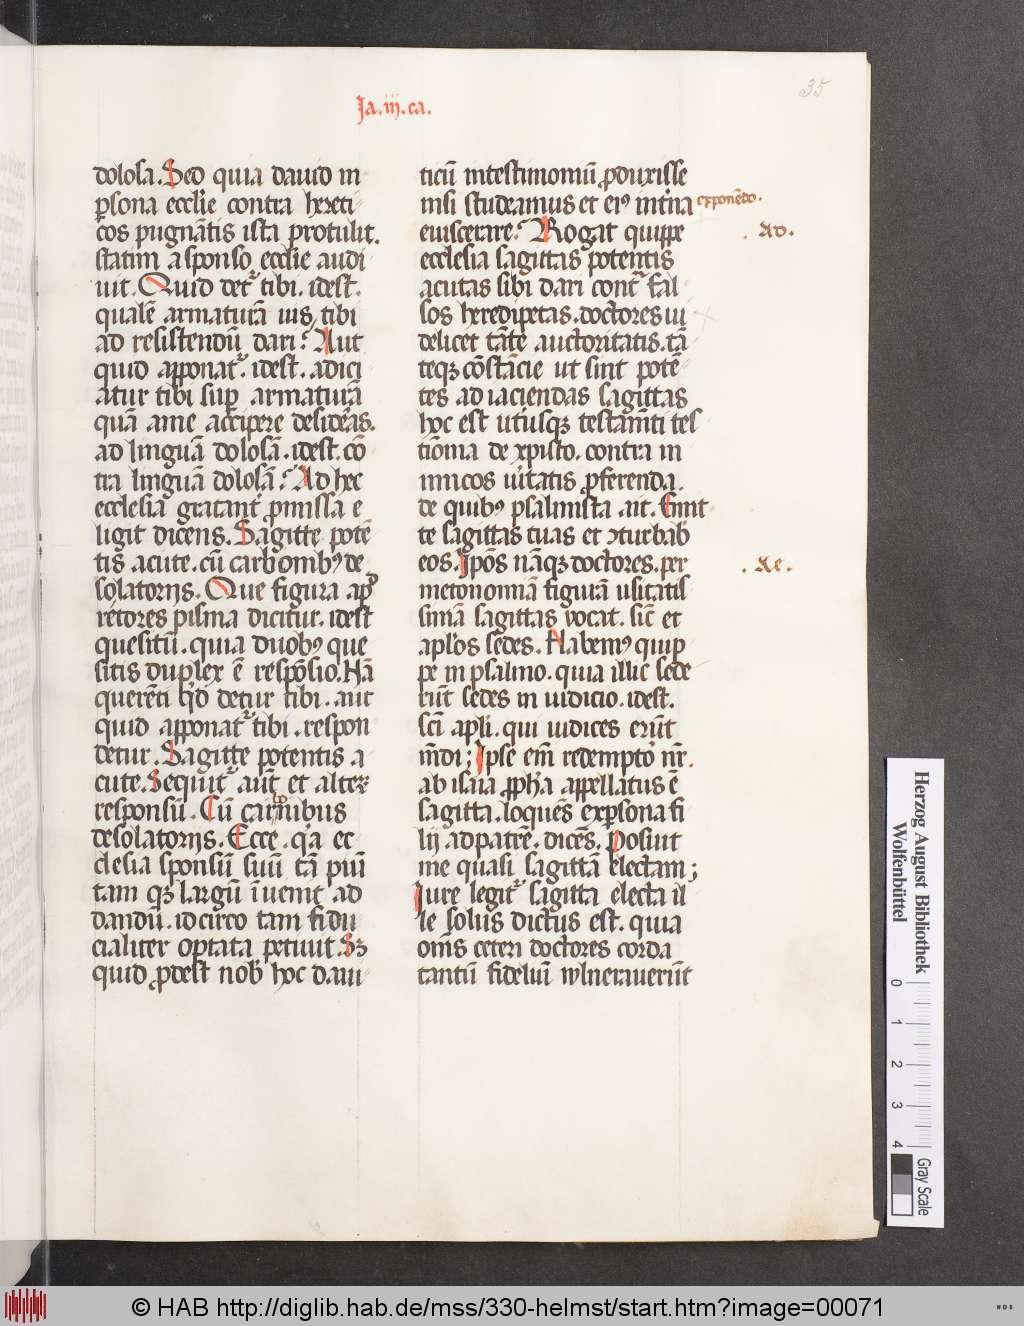 35
Ja. iij. ca.
dolosa. Sed quia dauid in
p̱sona ecclīe contra hereti
cos pugnātis ista protulit.
statim a sponso ecclīe audi
uit. Quid det᷑ tibi. idest.
qualē armaturā uis tibi
ad resistendū dari? Aut
quid apponat᷑. idest. adici
atur tibi sup̱ armaturā
quā a me accipere desideras.
ad linguā dolosā. idest. cō
tra linguā dolosā? Ad hec
ecclesia gratant᷑ p̄missa e
ligit dicens. Sagitte potē
tis acute. cū carbonibꝰ de
solatorijs. Que figura ap̱
retores pisma dicitur. idest
quesitū. quia duobꝰ que
sitis duplex ē respōsio. Nā
querēti qͥd detur tibi. aut
quid apponat᷑ tibi. respon
detur. Sagitte potentis a
cute. Sequit᷑ aūt et alteꝝ
responsū. Cū carbonibus
desolatorijs. Ecce. qͥa ec
clesia sponsū suū tā piū
tam qꝫ largū īuenit ad
dandū. idcirco tam fidu
cialiter optata petiuit. Sꝫ
quid ꝓdest nob̄ hoc daui
ticū in testimoniū ꝓduxisse
nisi studeamus et eiꝰ int̾na
exponēdo.
euiscerare? Rogat quippe
. Ad.
ecclesia sagittas potentis
acutas sibi dari cont᷑ fal
sos heredipetas. doctores ui
delicet tāte auctoritatis. tā
teqꝫ cōstācie ut sint potē
tes ad iaciendas sagittas
hoc est ut̾usqꝫ testam̄ti tes
tiōma de xpisto. contra in
imicos ueritatis ꝓferenda.
de quibꝰ psalmista ait. Emit
te sagittas tuas et ꝯturbab̾
eos. Ip̄os nāqꝫ doctores. per
. Ae.
metonomiā figurā usitatis
simā sagittas vocat. sic̄ et
ap̄los sedes. Habemꝰ quip
pe in psalmo. quia illic sede
rūt sedes in iudicio. idest.
sc̄i apl̄i. qui iudices erūt
m̄di; Ipse em̄ redemptor nr̄.
ab isaia ꝓph̄a appellatus ē
sagitta. loquēs ex p̱sona fi
lij ad patrē. dicēs. Posuit
me quasi sagittā electam;
Jure legit᷑ sagitta electa il
le solus dictus est. quia
om̄s ceteri doctores corda
tantū fideliū wlnerauerūt
Herzog August Bibliothek
Wolfenbüttel
0 1 2 3 4
Gray Scale
© HAB http://diglib.hab.de/mss/330-helmst/start.htm?image=00071